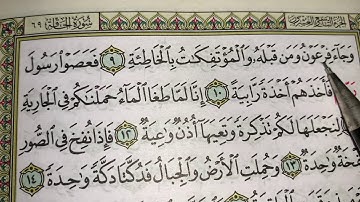 الجزء التاسع والعشرون سُورَةُ الحَاقَّة ٦٩
وَجَآءَ فِرْعَوْنُ وَمَن قَبْلَهُۥ وَٱلْمُؤْتَفِكَٰتُ بِٱلْخَاطِئَةِ ٩ فَعَصَوْا۟ رَسُولَ
فَأَخَذَهُمْ أَخْذَةً رَّابِيَةً ١٠ إِنَّا لَمَّا طَغَا ٱلْمَآءُ حَمَلْنَٰكُمْ فِى ٱلْجَارِيَةِ
لِنَجْعَلَهَا لَكُمْ تَذْكِرَةً وَتَعِيَهَآ أُذُنٌ وَٰعِيَةٌ ١٢ فَإِذَا نُفِخَ فِى ٱلصُّورِ
وَٰحِدَةٌ ١٣ وَحُمِلَتِ ٱلْأَرْضُ وَٱلْجِبَالُ فَدُكَّتَا دَكَّةً وَٰحِدَةً ١٤